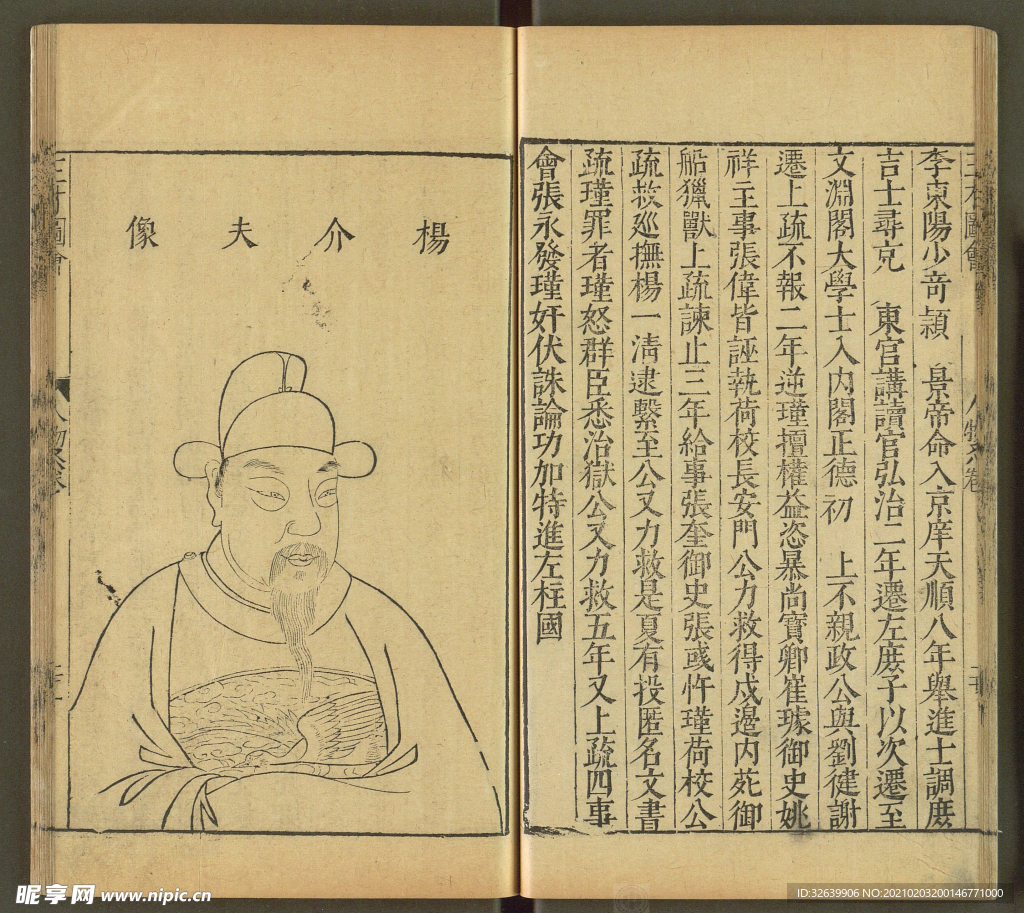 李東陽少奇穎 景帝命入京庠天順八年舉進士調庶
吉士尋克 東宮講讀官弘治二年遷左庶子以次遷至
文淵閣大學士入內閣正德初 上不親政公與劉健謝
遷上疏不報二年逆瑾擅權益恣暴尚寶卿崔璿御史姚
祥主事張偉皆誣執荷校長安門公力救得戍邊內苑御
船獵獸上疏諫止三年給事張奎御史張彧忤瑾荷校公
疏救巡撫楊一清逮繫至公又力救是夏有投匿名文書
疏瑾罪者瑾怒群臣悉治獄公又力救五年又上疏四事
會張永發瑾奸伏誅論功加特進左柱國
三才圖會
人物 卷
楊介夫像
三才圖會
人物 卷
昵享网 www.nipic.cn
ID:32639906 NO:20210203200146771000